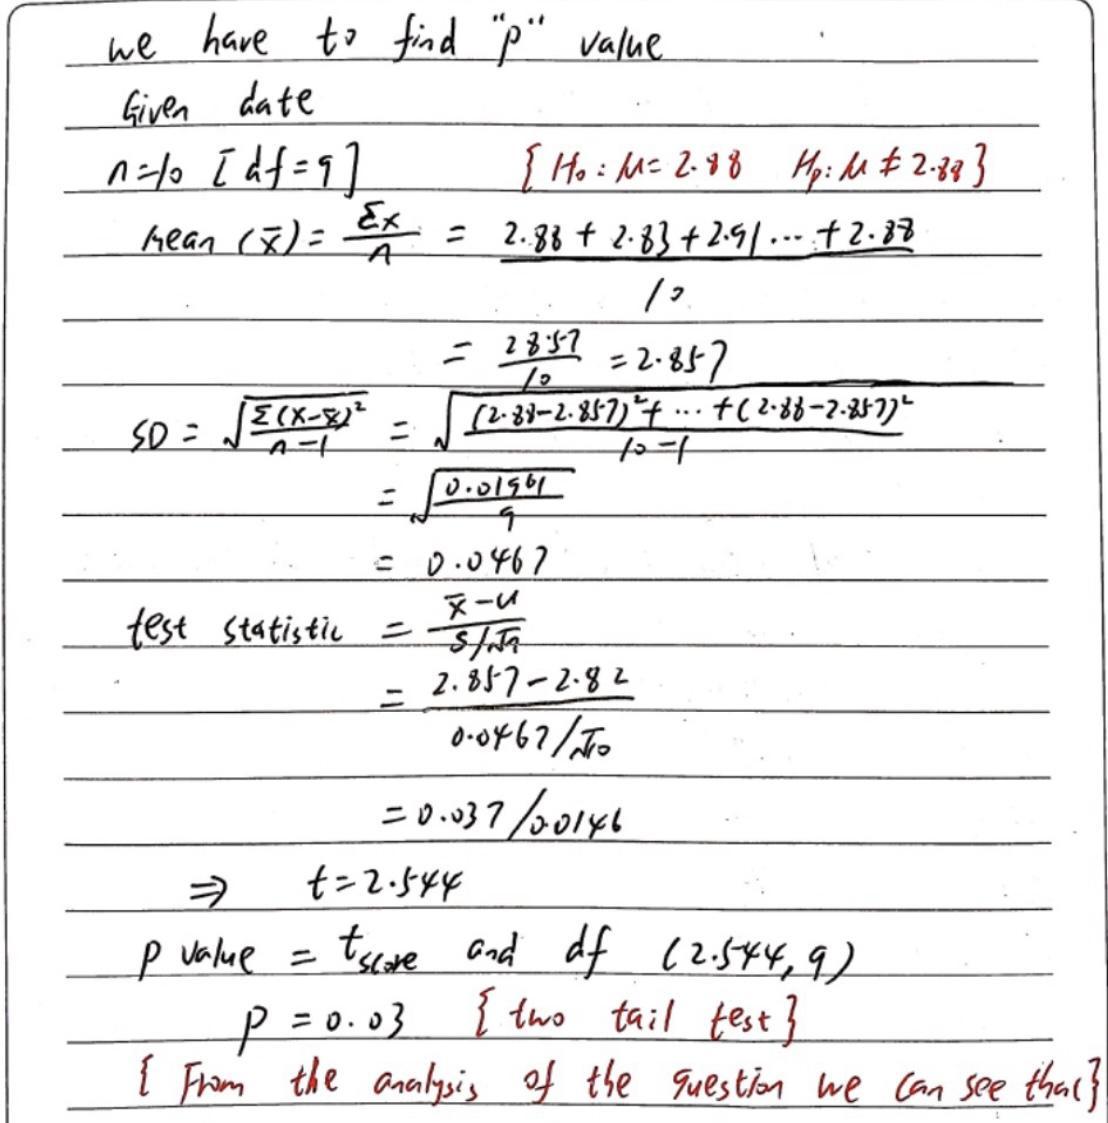 we have to find "p" value
Given date
n=10 [df=9] {H₀: μ= 2.88 Hp: μ ≠ 2.88}
mean (x̄) = Σx/n = 2.88 + 2.83 + 2.91 ... + 2.88 / 10
= 28.57/10 = 2.857
SD = √(Σ(x-x̄)²/n-1) = √((2.88-2.857)²+ ... +(2.88-2.857)²/10-1)
= √(0.01961/9)
= 0.0467
test statistic = x̄-u / s/√n
= 2.857-2.82 / 0.0467/√10
= 0.037/0.0146
⇒ t=2.544
p value = t score and df (2.544, 9)
p = 0.03 {two tail test}
{From the analysis of the question we can see that}